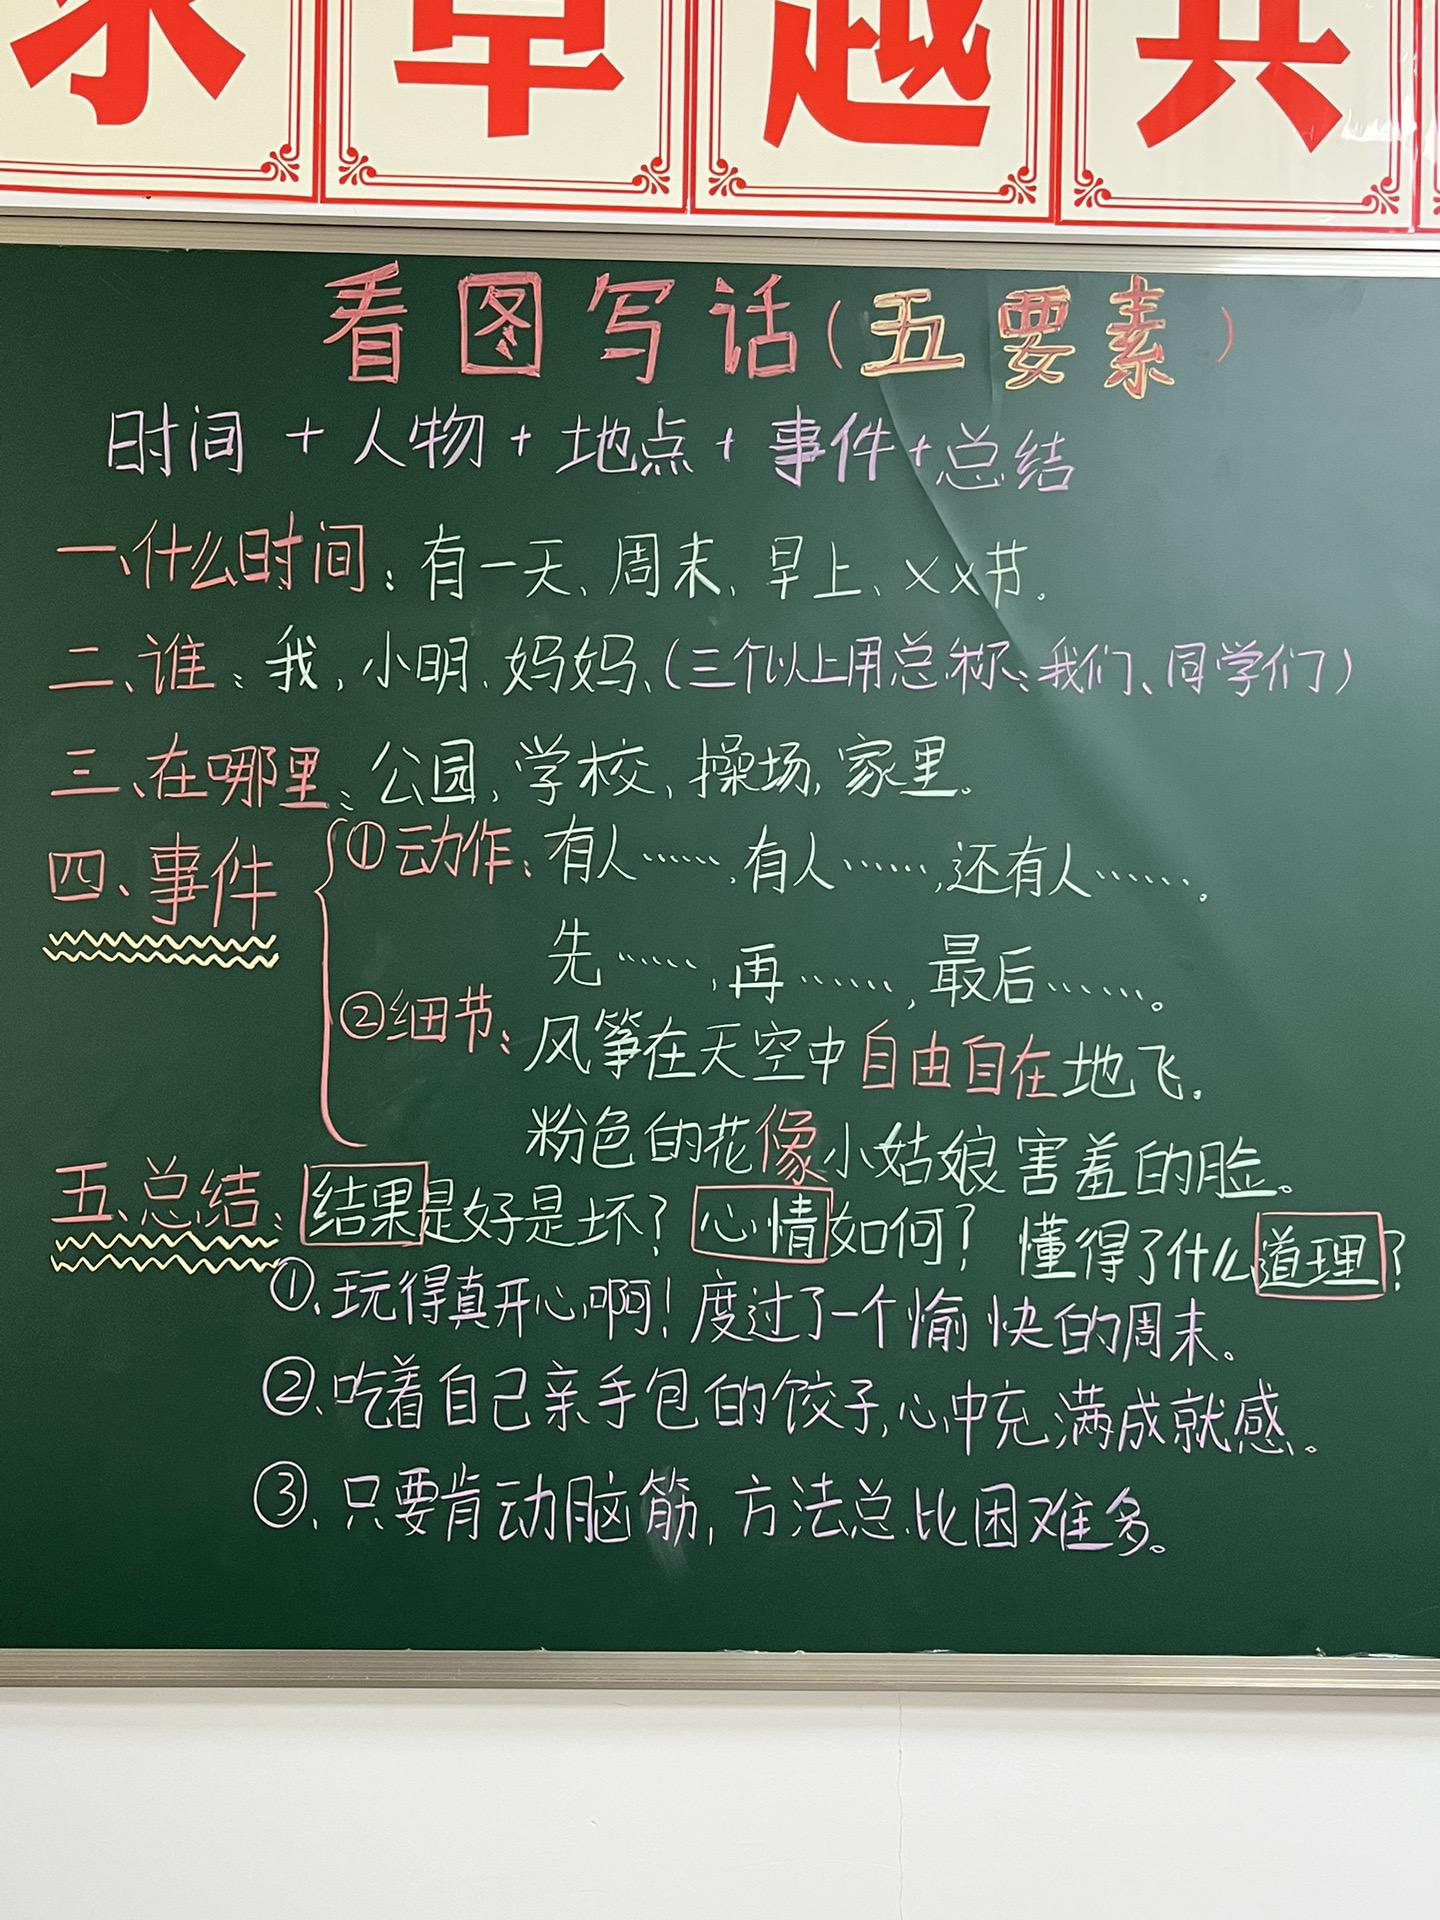 求卓越共
看图写话(五要素)
时间+人物+地点+事件+总结
一、什么时间:有一天、周末、早上、××节。
二、谁:我、小明、妈妈、(三个以上用总称:我们、同学们)
三、在哪里:公园,学校,操场,家里。
四、事件 ①动作:有人……,有人……,还有人……。
先……,再……,最后……。
②细节:风筝在天空中自由自在地飞。
粉色的花像小姑娘害羞的脸。
五、总结:结果是好是坏?心情如何?懂得了什么道理?
①、玩得真开心啊!度过了一个愉快的周末。
②、吃着自己亲手包的饺子,心中充满成就感。
③、只要肯动脑筋,方法总比困难多。